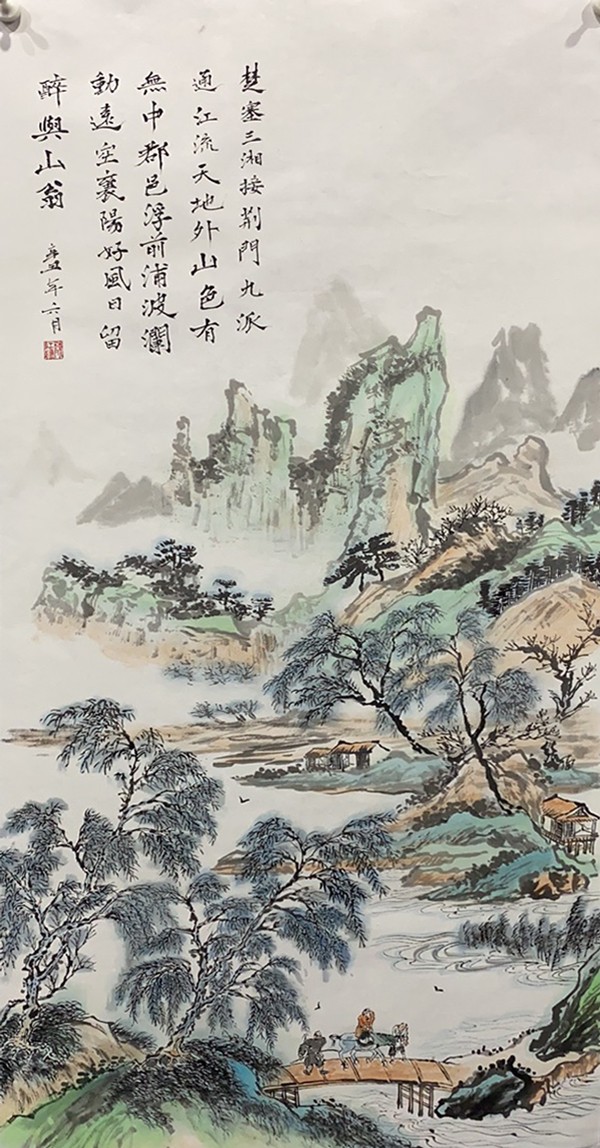 楚塞三湘接荆門九派
通江流天地外山色有
無中郡邑浮前浦波瀾
動遠空襄陽好風日留
醉與山翁
年六月